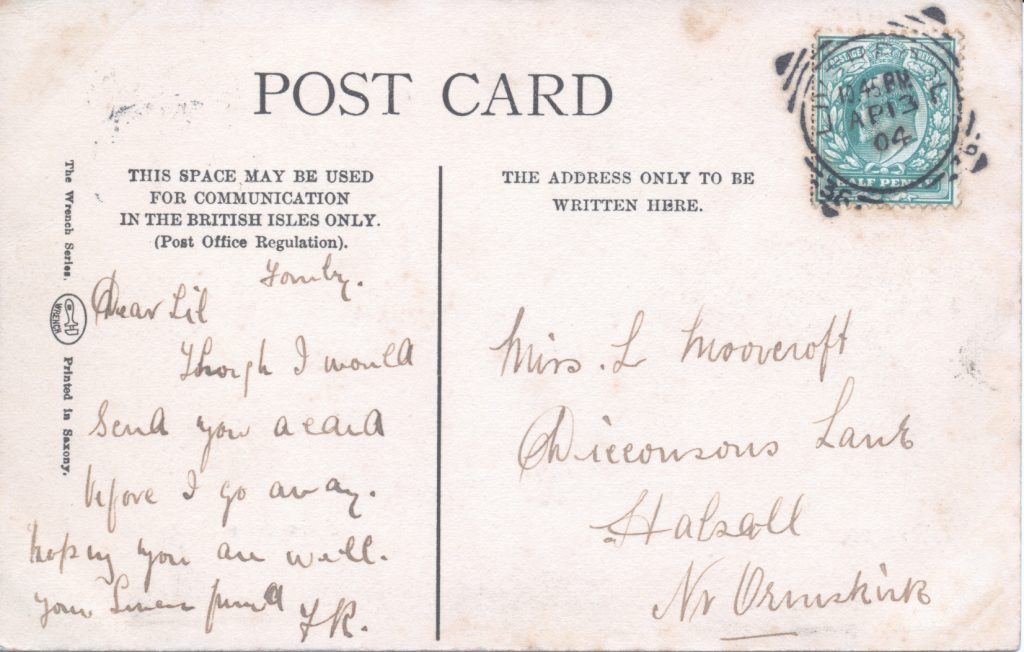 POST CARD
THIS SPACE MAY BE USED
FOR COMMUNICATION
IN THE BRITISH ISLES ONLY.
(Post Office Regulation).
THE ADDRESS ONLY TO BE
WRITTEN HERE.
The Wrench Series.
WRENCH
Printed in Saxony.
POSTAGE
HALF PENNY
10.45 PM
AP 13
04
Formby.
Dear Lil
Though I would
send you a card
before I go away.
hoping you are well.
Your Sincere friend
Miss. L Moorcroft
Dicconsons Lane
Halsall
Nr Ormskirk